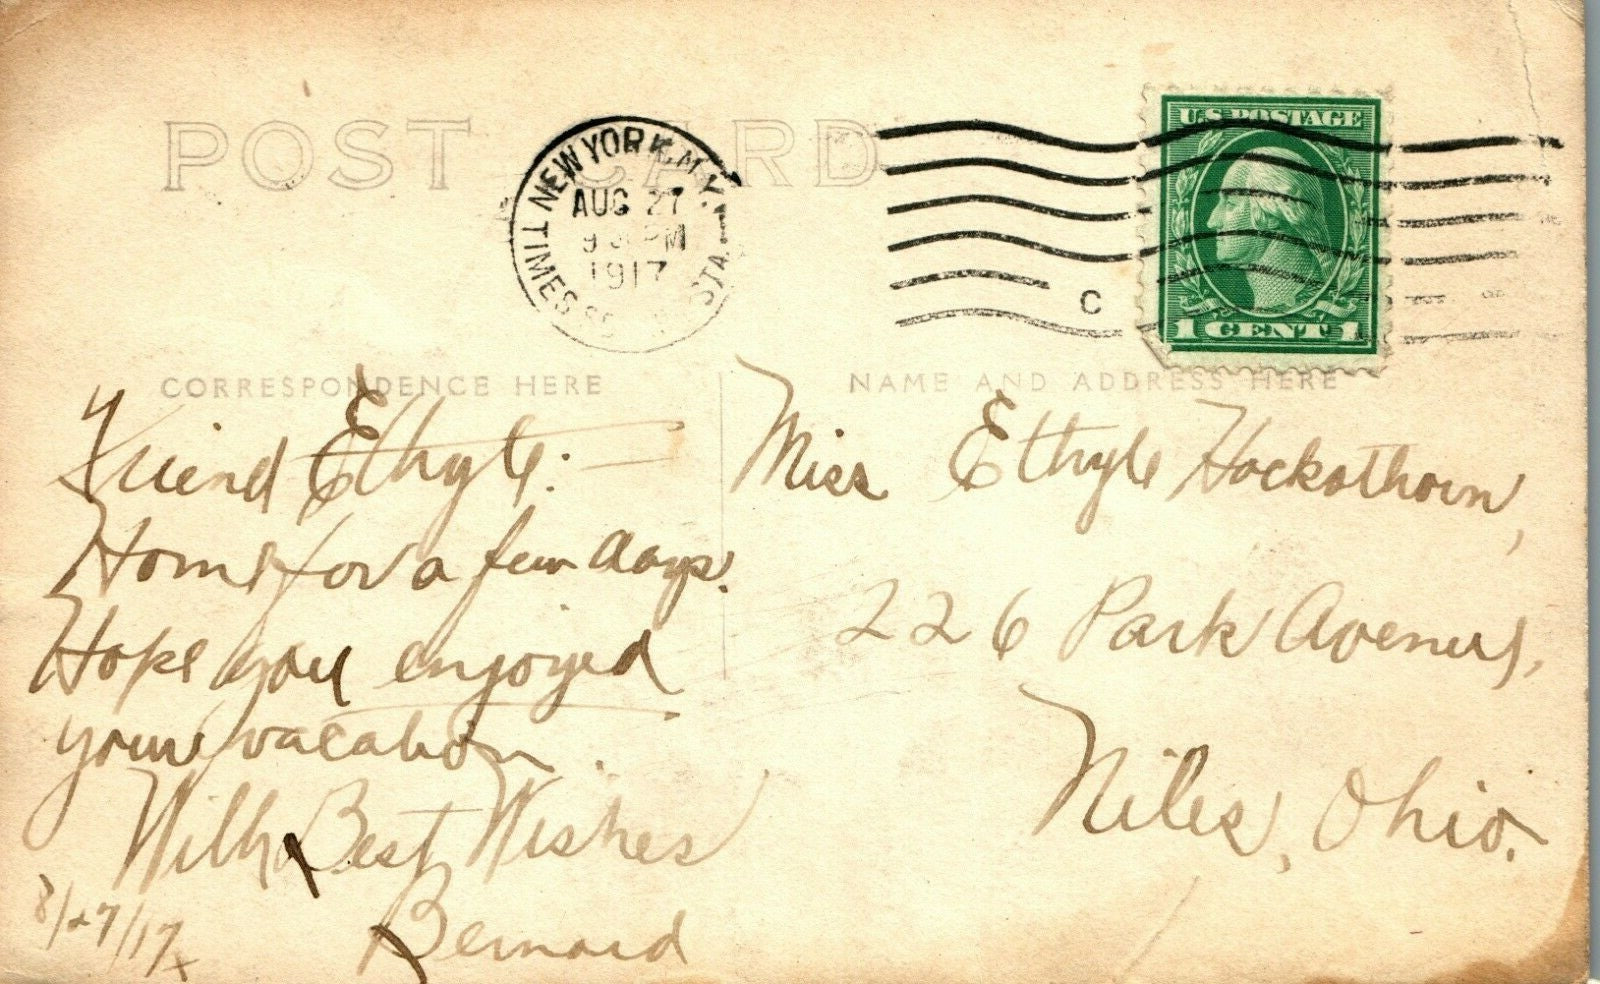 POST CARD
NEW YORK, N.Y.
TIMES SQ. STA.
AUG 27
PM
1917
C
U.S. POSTAGE
1 CENT 1
CORRESPONDENCE HERE
NAME AND ADDRESS HERE
Friend Ethyle:
Home for a few days.
Hope you enjoyed
your vacation.
With Best Wishes
Bernard
8/27/17
Miss Ethyle Hockathorn,
226 Park Avenue,
Niles, Ohio.